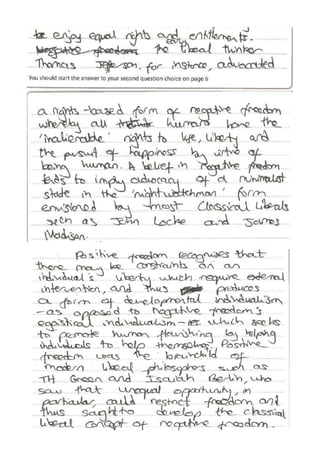 to enjoy equal rights and entitlements.
Negative freedom the liberal thinker
Thomas Jefferson, for instance, advocated
You should start the answer to your second question choice on page 6
a rights-based form of negative freedom
whereby all humans have the
'inalienable' rights to life, liberty and
the pursuit of happiness by virtue of
being human. A belief in negative freedom
tends to imply advocacy of a minimalist
state in the 'nightwatchman' form
envisioned by most Classical liberals
such as John Locke and James
Madison.
Positive freedom recognises that
there may be constraints on an
individual's liberty which require external
intervention, and thus produces
a form of developmental individualism
- as opposed to negative freedom's
egoistical individualism - which seeks
to promote human flourishing by helping
individuals to help themselves. Positive
freedom was the brainchild of
modern liberal philosophers such as
TH Green and Isaiah Berlin, who
saw that unequal opportunity, in
particular, could restrict freedom and
thus sought to develop the classical
liberal concept of negative freedom.